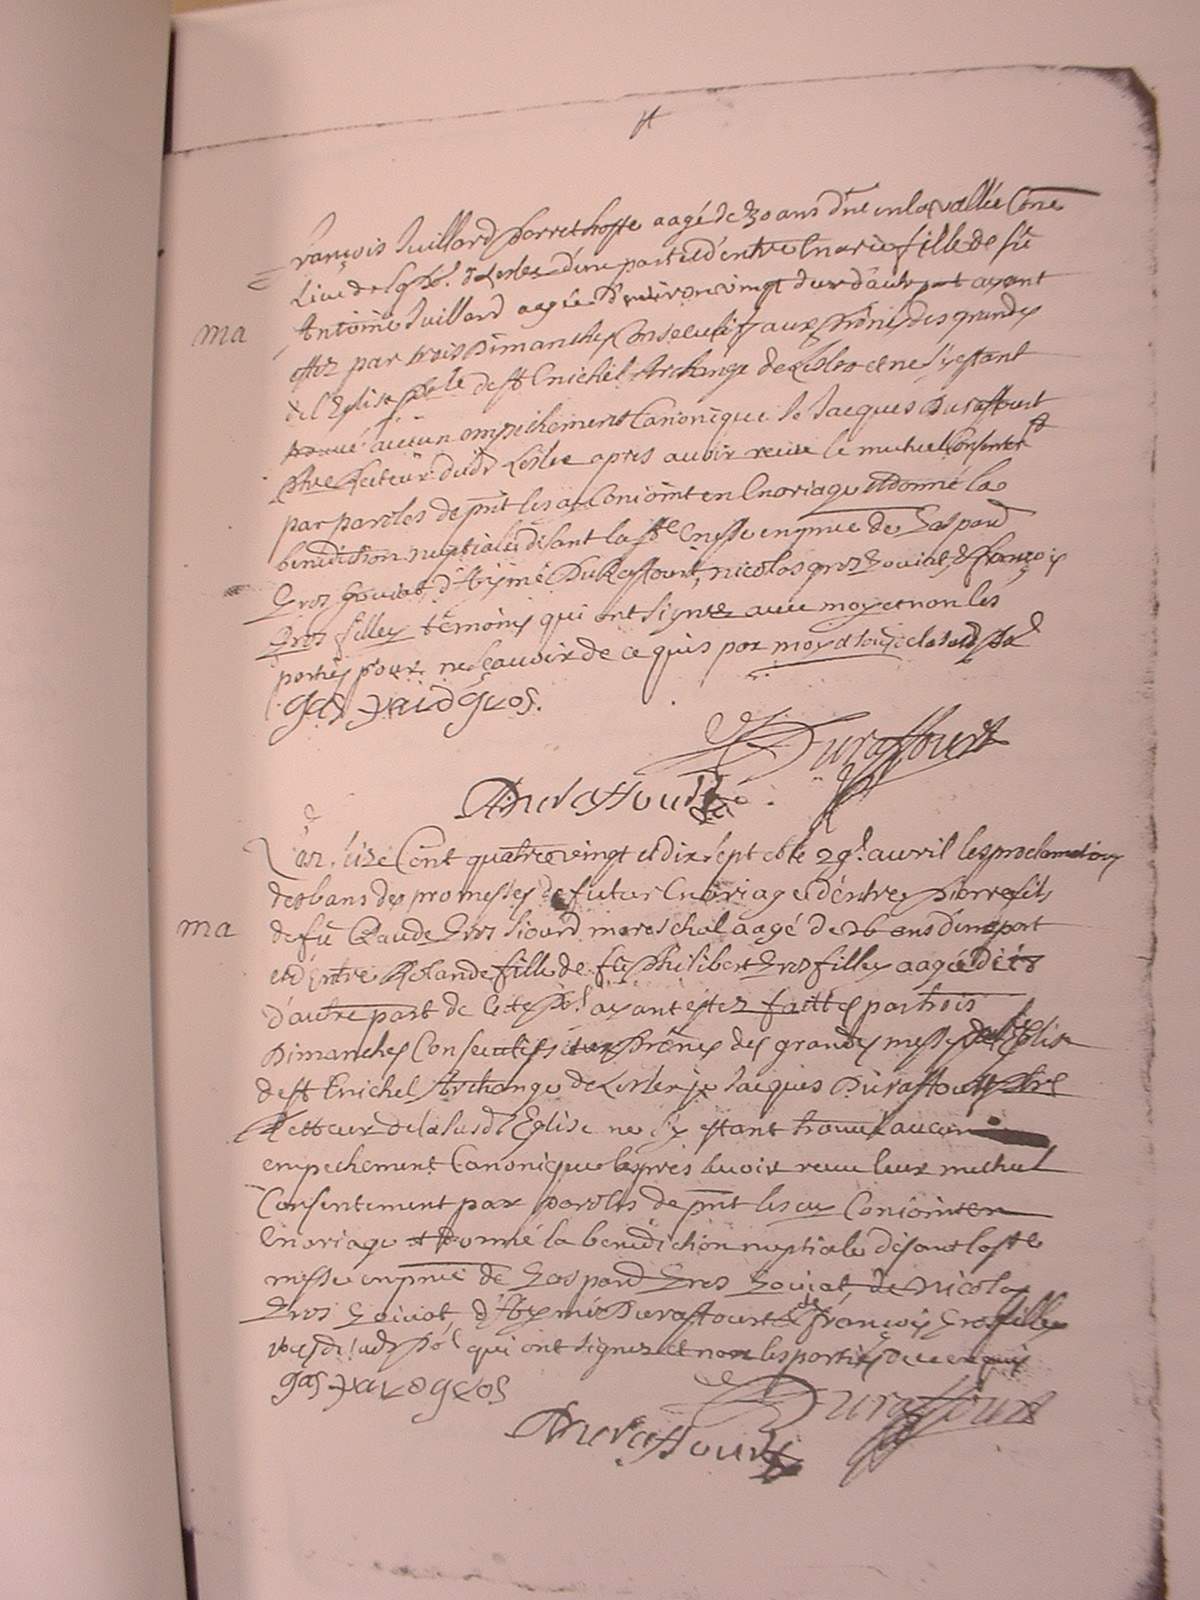 françois Juillard Perret hoste aagé de 30 ans d'ne en la vallée
Lieu de d'une part et d'entre Marie fille de fû
ma
Antoine Juillard aagée d'environ vingt deux d'autre part ayant
estez par trois Dimanches Consecutifs aux Prônes des grandes
de l'Eglise de st Michel Archange de Leslex et ne s'y estant
trouvé aucun empechement Canonique Je Jacques Duraffourt
Pbre Recteur dudt Leslex apres auoir receu le mutuel
par paroles de pnt les ay Conioint en Mariage et donné la
benediction nuptiale disant la ste Messe en pnce de Gaspard
Gros Goviat, d'Aymé Duraffourt, nicolas gros Goviat, et françois
Gros filley témoins qui ont signez auec moy et non les
parties pour ne sçauoir de ce quis par moy
gaspaid gros.
Duraffourt
ADuraffourt
L'an seize Cent quatre vingt et dix sept et le 29e auril les proclamations
des bans des promesses de futur Mariage d'entre Pierre fils
ma
de fû Claude Gros mareschal aagé de 26 ans d'une part
et d'entre Rolande fille de fû Philibert Gros filley aagée
d'autre part de ayant estez faittes par trois
Dimanches Consecutifs aux Prônes des grandes messes de l'Eglise
de st Michel Archange de Leslex je Jacques Duraffourt Pbre
Recteur de la susdt Eglise ne s'y estant trouvé aucun
empechement Canonique apres auoir receu leur mutuel
Consentement par paroles de pnt les ay Conioint en
Mariage et donné la benediction nuptiale disant la ste
messe en pnce de Gaspard Gros Goviat, de Nicolas
Gros Goviat, d'Aymé Duraffourt et de françois Gros filley
qui ont signez et non les parties de ce enquis
gaspaid gros
Duraffourt
ADuraffourt